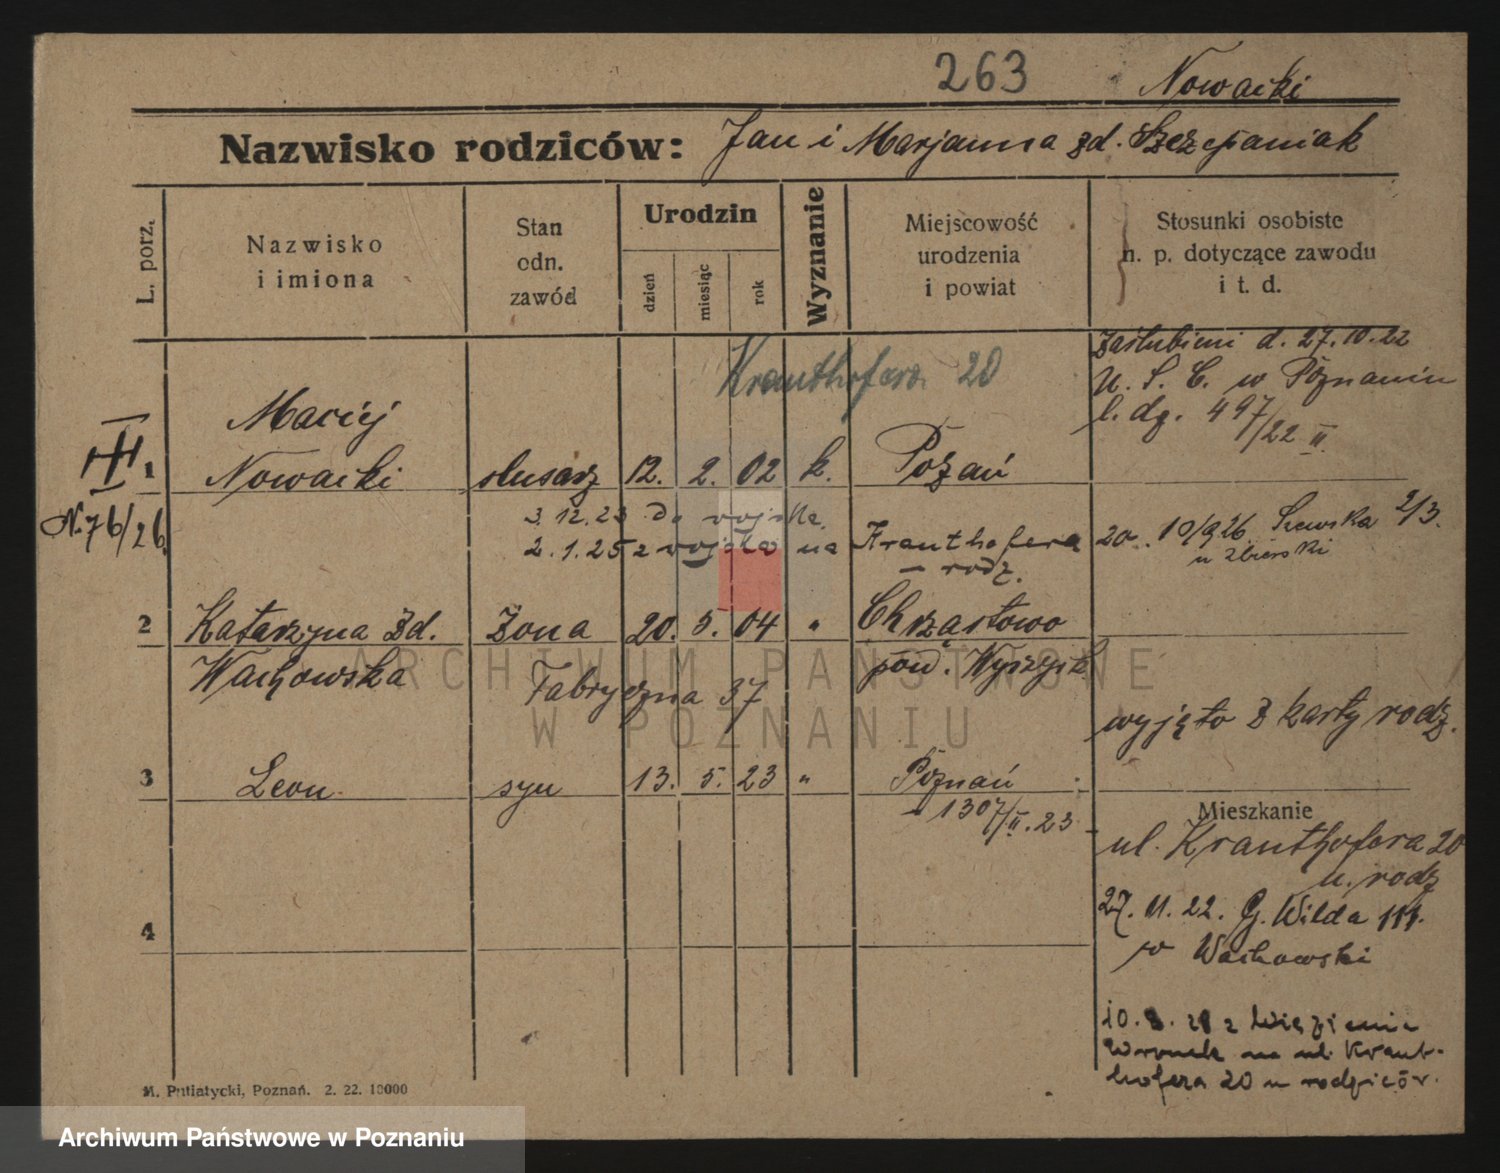 263 Nowacki
Nazwisko rodziców: Jan i Marjanna zd. Szczepaniak
L. porz.
Nazwisko
i imiona
Stan
odn.
zawód
Urodzin
dzień
miesiąc
rok
Wyznanie
Miejscowość
urodzenia
i powiat
Stosunki osobiste
n. p. dotyczące zawodu
i t. d.
Krauthofera 20
Zaślubieni d. 27.10.22
U. S. C. w Poznaniu
l. dz. 497/22 II.
III
1 Maciej
Nowacki ślusarz 12. 2. 02 k. Poznań
N. 76/26.
3.12.23 do wojska.
2.1.25 z wojska na Krauthofera 20. 10/9 26. Szewska 2/3.
– rodz. u Zbierski
2 Katarzyna zd. żona 20. 5. 04 " Chrząstowo
Wachowska pow. Wyrzysk
Fabryczna 37
wyjęto z karty rodz.
3 Leon syn 13. 5. 23 " Poznań
1307/II.23
Mieszkanie
ul. Krauthofera 20
u. rodz
27. 11. 22. G. Wilda 111.
w Wachowski
4
10. 8. 28 z więzienia
Wronek na ul. Kraut-
hofera 20 u rodziców.
M. Putiatycki, Poznań. 2. 22. 10000
ARCHIWUM PAŃSTWOWE
W POZNANIU
Archiwum Państwowe w Poznaniu